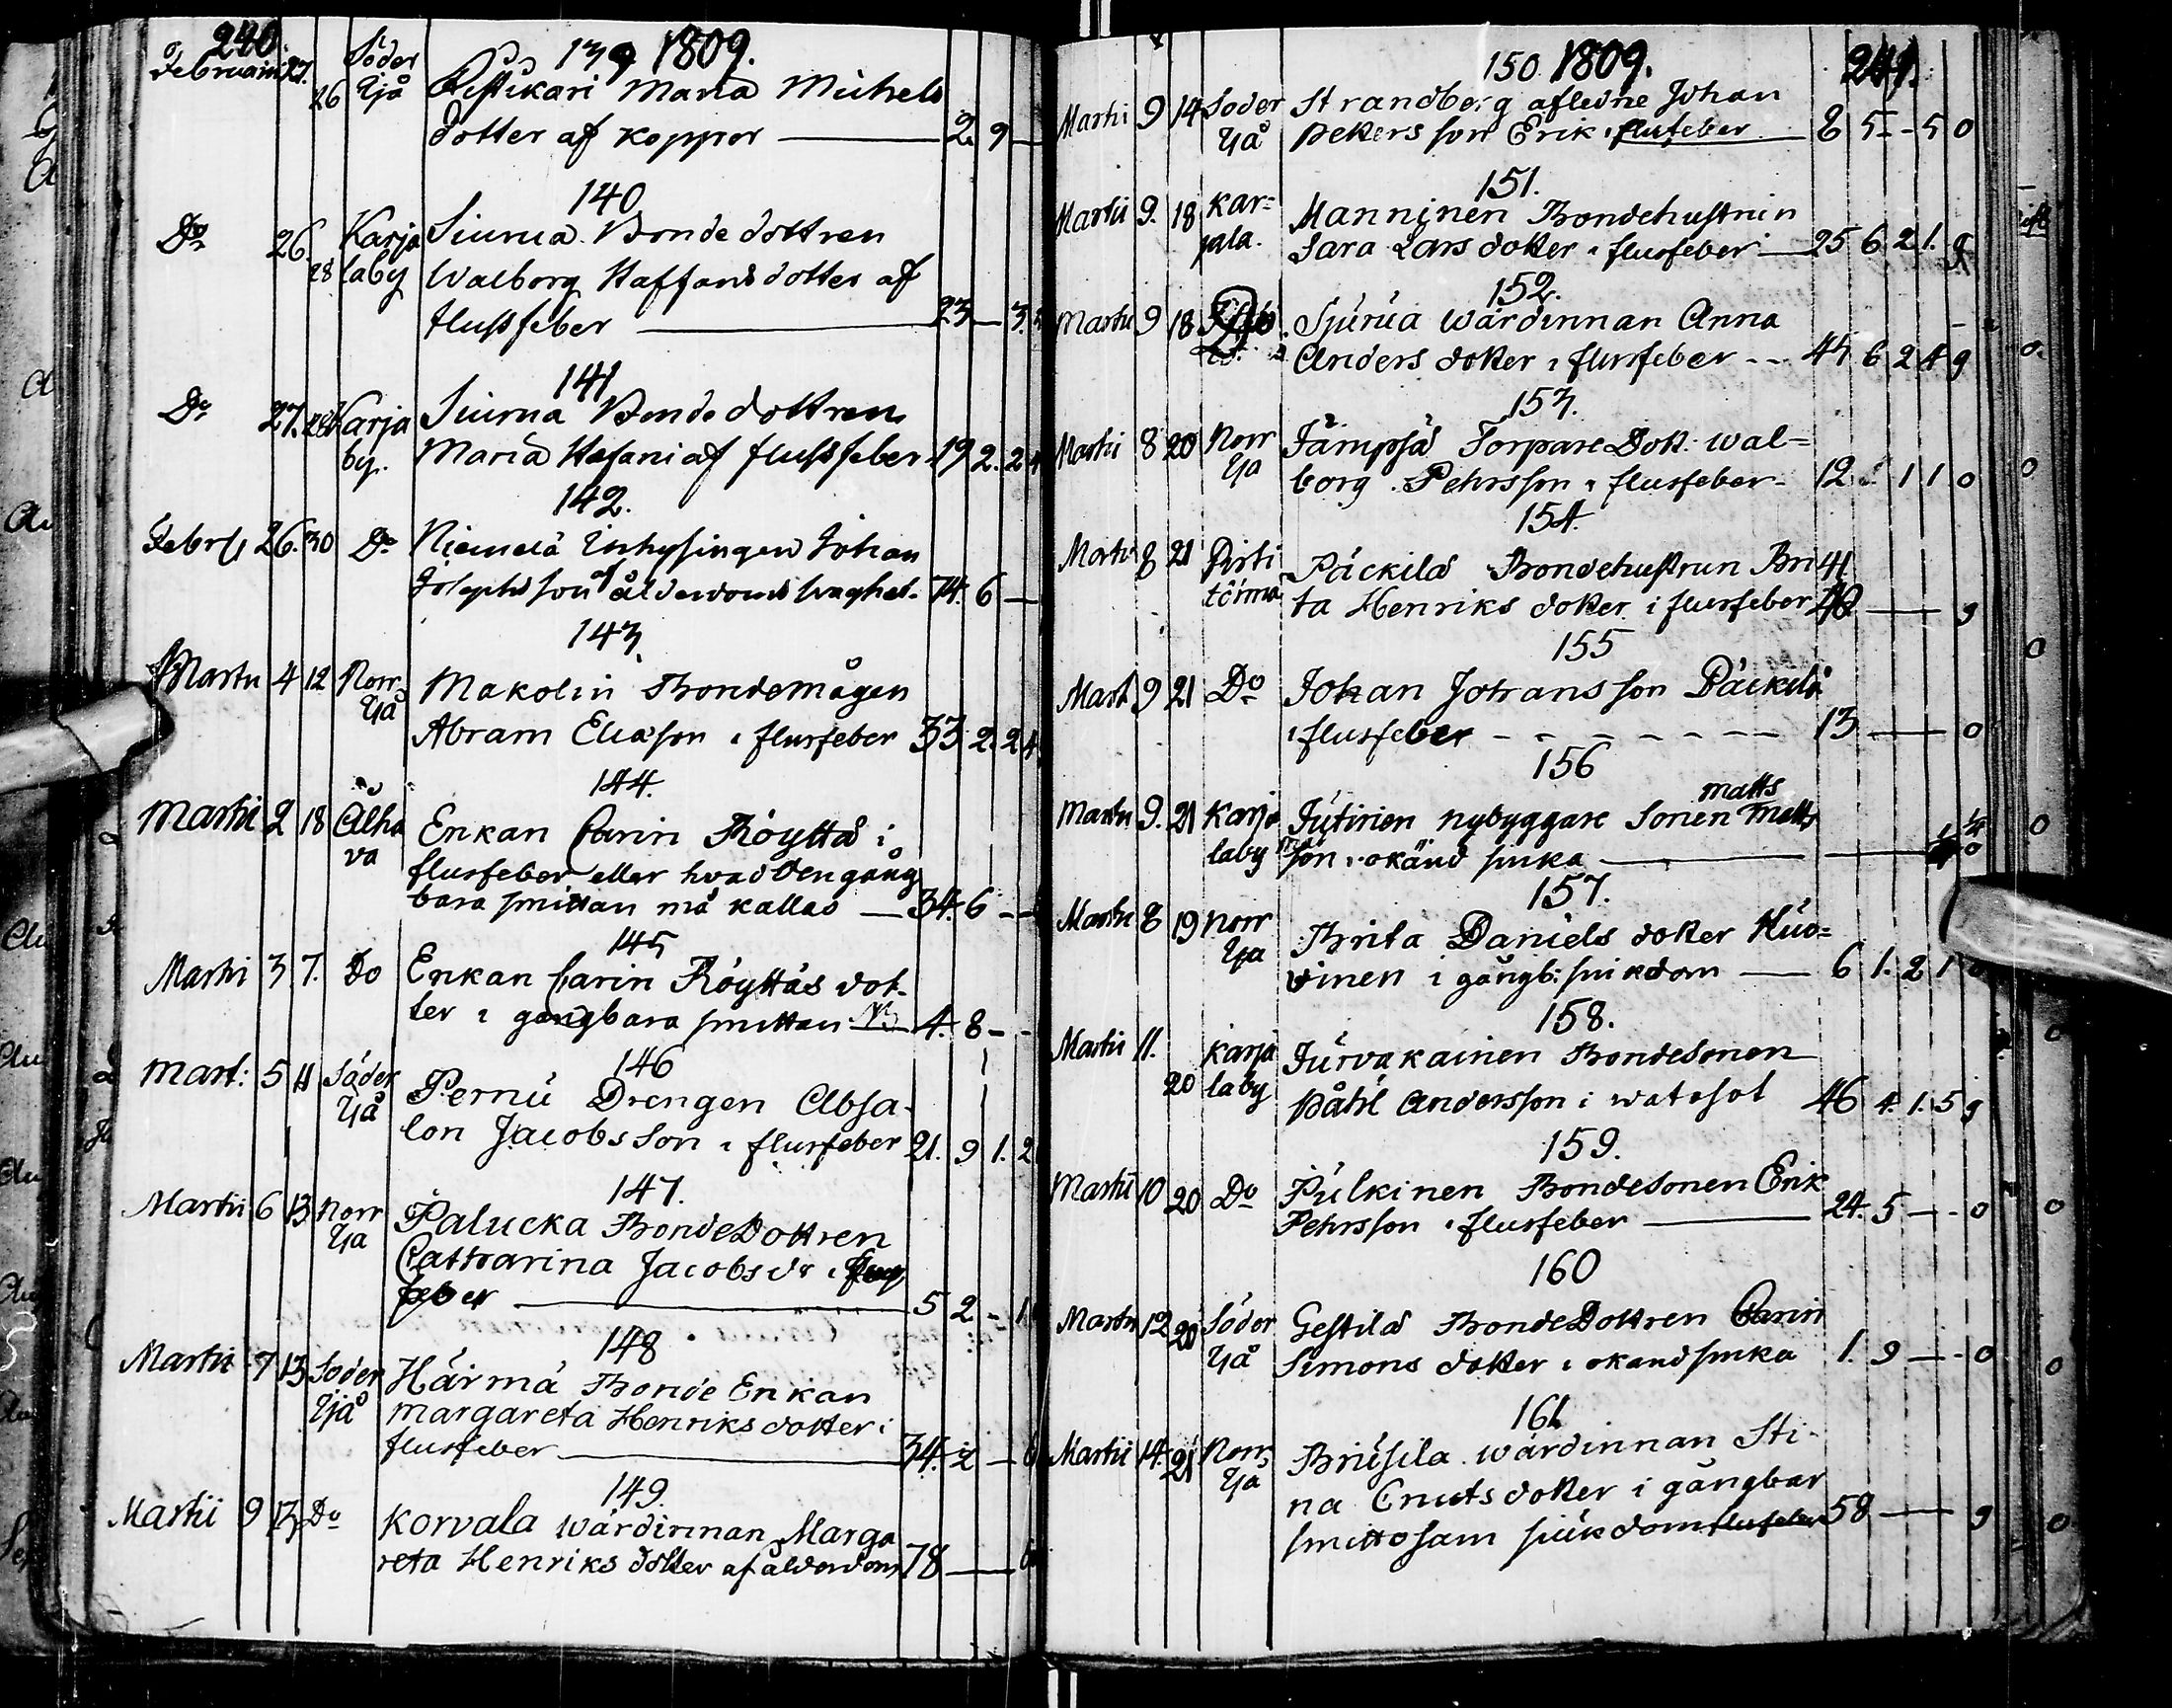 240.
139 1809.
Februarii 27. 26 Söder Yjå Ristikari Maria Michels
dotter af koppor — 2. 9 —
140
Do 26. 28 Karjalaby Siurua Bonde dottren
Walborg Staffansdotter af
flussfeber — 23 — 3.
141
Do 27. 28 Karjaby. Siurua Bonde dottren
Maria Stafani af flussfeber. 19 2. 2 4
142.
Febr. 26. 30 Do Niemelä Inhysingen Johan
Josephsson af ålderdoms swaghet. 74. 6 —
143.
Martii 4 12 Norr Yjå Makolin Bondemågen
Abram Eliasson i flusfeber 33 2. 2 4
144.
Martii 2 18 Alhava Enkan Carin Röyttä i
flusfeber eller hvad den gång
bara smittan må kallas — 34. 6 —
145
Martii 3 7. Do Enkan Carin Röyttäs dot-
ter i gangbara smittan — 4. 8 - -
146
Mart: 5 11 Söder Yjå Pernu Drengen Absa-
lon Jacobsson i flusfeber 21. 9 1. 2
147.
Martii 6 13 Norr Yja Palucka BondeDottren
Catharina Jacobsdr i flus
feber — 5 2 - 1
148
Martii 7 13 Soder Yjå Härmä Bonde Enkan
Margareta Henriks dotter i
flusfeber — 34. 2 —
149.
Martii 9 13 Do Korvala wärdinnan Marga
reta Henriks dotter af ålderdom 78 —
150. 1809. 241.
Martii 9 14 Soder Yjå Strandberg afledne Johan
Petters son Erik i flusfeber — 8 5 - 5 0
151.
Martii 9. 18 Karjala. Manninen Bondehustrun
Sara Lars dotter i flusfeber — 25 6 2 1. g
152.
Martii 9 18 Do Sjurua wärdinnan Anna
Anders dotter i flusfeber -- 45 6 2 4 g
153.
Martii 8 20 Norr Yja Jämpsä Torpare Dott. Wal=
borg Pehrsson i flusfeber - 12 1 1 0
154.
Martii 8 21 Päckilä Bondehustrun Bri 41
ta Henriks dotter i flusfeber — g
155
Mart 9 21 Do Johan Johansson Päckilä
i flusfeber - - - - - - - 13 — 0
156
matts
Martii 9. 21 Karjalaby Jutinen nybyggare Sonen Matts
son i okänd siuka — 0
157.
Martii 8 19 Norr Yja Brita Daniels dotter Kuo=
vinen i gångb: siukdom — 6 1. 2 1
158.
Martii 11. 20 Karjalaby Jurvakainen Bondesonen
Påhl Andersson i watesot 46 4. 1. 5 g
159.
Martii 10 20 Do Pulkinen Bondesonen Erik
Pehrsson i flusfeber — 24. 5 — - 0
160
Martii 12 20 Söder Yjå Gestilä BondeDottren Carin
Simons dotter i okand siuka 1. 9 — - 0
161
Martii 14. 21 Norr Yja Briusila wärdinnan Sti-
na Cnuts dotter i gångbar
smittosam siukdom flusfeber 58 — g